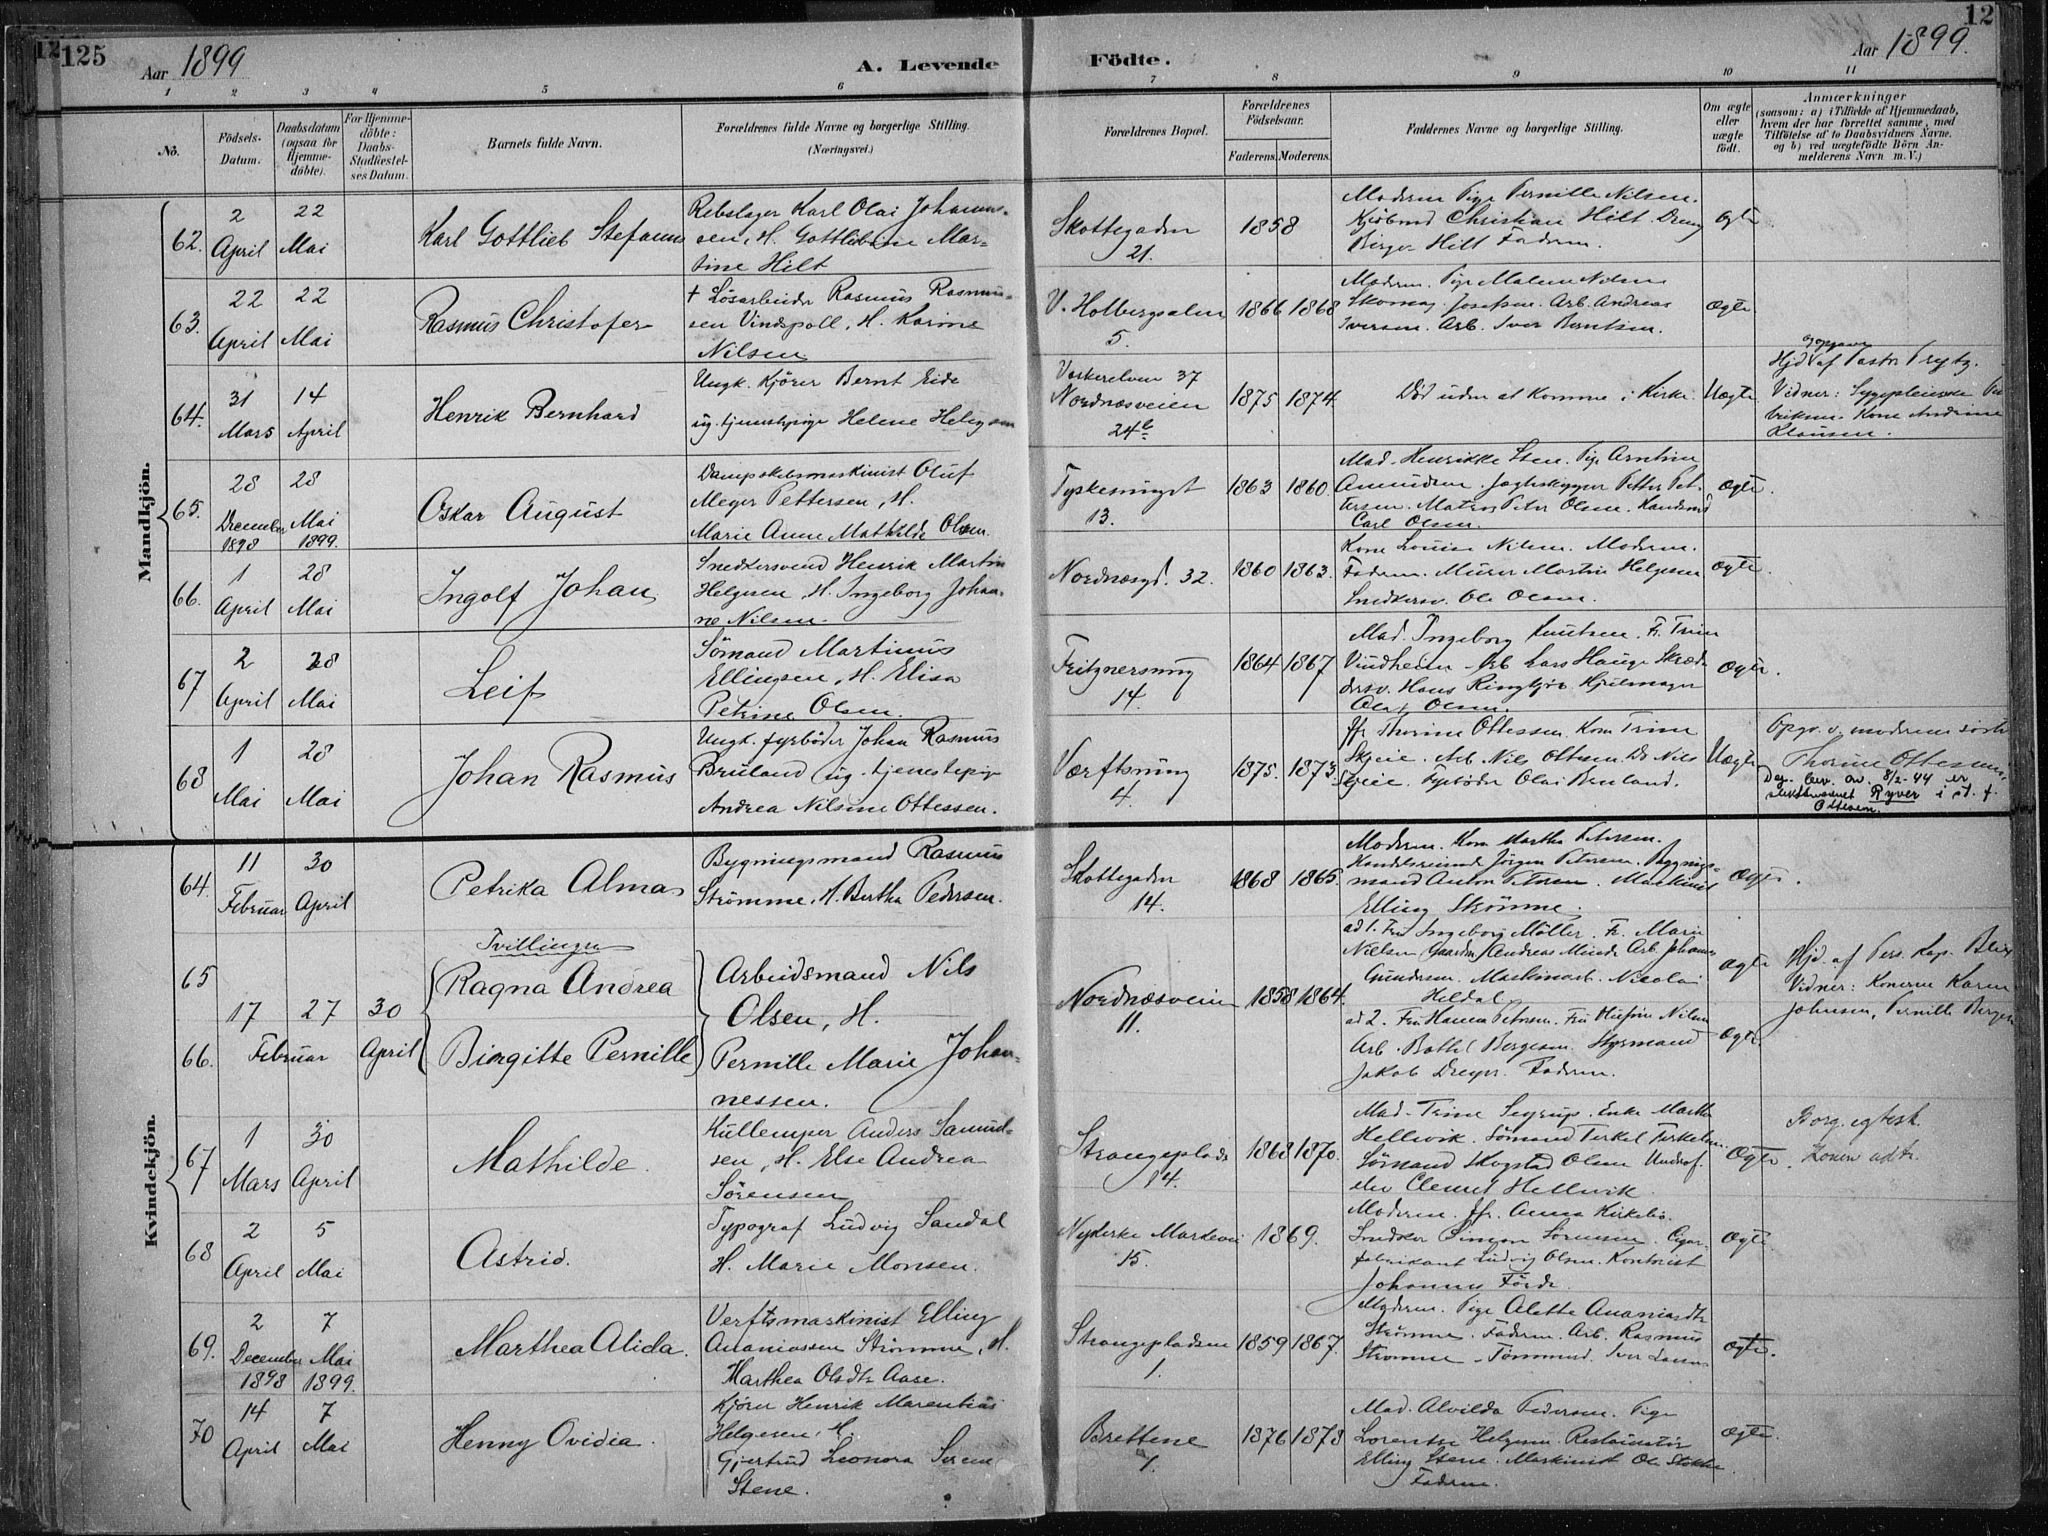 125
Aar 1899
A. Levende
Födte.
Aar 1899.
12
12
1 2 3 4 5 6 7 8 9 10 11
No.
Födsels-
Datum.
Daabsdatum
(ogsaa for
Hjemme-
döbte).
For Hjemme-
döbte:
Daabs-
Stadfæstel-
ses Datum.
Barnets fulde Navn.
Forældrenes fulde Navne og borgerlige Stilling.
(Næringsvei.)
Forældrenes Bopæl.
Forældrenes
Födselsaar.
Faderens. Moderens.
Faddernes Navne og borgerlige Stilling.
Om ægte
eller
uægte
födt.
Anmærkninger
(saasom: a) i Tilfælde af Hjemmedaab,
hvem der har forrettet samme, med
Tilföielse af to Daabsvidners Navne,
og b) ved uægtefödte Börn An-
melderens Navn m. V.)
Mandkjön.
62.
2
April
22
Mai
Karl Gottlieb Stefanus
Rebslager Karl Olai Johannes-
sen, H. Gottliebine Mar-
tine Hilt
Skottegaden
21.
1858
Moderen. Pige Pernille Nilsen.
Kjöbmd Christian Hilt. Dreng
Birger Hilt. Faderen.
Ægte
63.
22
April
22
Mai
Rasmus Christofer
+ Lösarbeider Rasmus Rasmus-
sen Vindspoll, H. Karine
Nilsen
V. Holbergsalm
5.
1866 1868
Moderen. Pige Malene Nilsen
Skomag. Josefsen. Arb. Andreas
Iversen. Arb. Iver Berntsen.
Ægte
64.
31
Mars
14
April
Henrik Bernhard
Ungk. Kjörer Bernt Eide
ug. tjenestepige Helene Helgesen
Vaskerelven 37
Nordnæsveien
24b
1875 1874.
Död uden at komme i Kirke.
Uægte
opgave
Hjd af Pastr. Prytz.
Vidner: Sygepleierske
Kone Andrine
Klausen.
65.
28
December
1898
28
Mai
1899.
Oskar August
Dampskibsmaskinist Oluf
Meyer Pettersen, H.
Marie Anne Mathilde Olsen.
Tyskesmuget
13.
1863 1860.
Mad. Henrikke Sten. Pige Arntine
Amundsen. Jagteskipper Petter Pet-
tersen. Matros Peter Olsen. Handelsmd
Carl Olsen.
Ægte.
66.
1
April
28
Mai
Ingolf Johan
Snedkersvend Henrik Martin
Helgesen, H. Ingeborg Johan-
ne Nilsen.
Nordnæsgd. 32.
1860 1863.
Kone Louise Nilsen. Moderen.
Faderen. Murer Martin Helgesen
Snedkersv. Ole Olsen.
Ægte.
67
2
April
28
Mai
Leif
Sömand Martinus
Ellingsen, H. Elisa
Petrine Olsen.
Fritznersmug
14.
1864 1867
Mad. Ingeborg Knutsen. Fr. Trine
Vindheim. Arb Lars Hauge. Skræd-
dersv. Hans Ringkjöb. Hjulmager
Olaf Olsen.
Ægte.
68
1
Mai
28
Mai
Johan Rasmus
Ungk. fyrböder Johan Rasmus
Bruland, ug. tjenestepige
Andrea Nilsine Ottessen.
Værftsmug
4.
1875. 1873.
Jfr Thorine Ottessen. Kone Trine
Skjeie. Arb. Nils Ottesen. Do Nils
Skjeie. Fyrböder Olai Bruland.
Uægte
Opgv. v. moderens söster
Thorine Ottesen,
Dep. bev. av 8/2-44 er
slektsnavnet Ryver i st. f.
Ottesen.
Kvindekjön.
64.
11
Februar
30
April
Petrika Alma
Bygningsmand Rasmus
Strömme, H. Bertha Pedersen.
Skottegaden
14.
1868 1865.
Moderen. Kone Martha Petersen.
Handelsreisende Jörgen Petersen. Bygnings-
mand Anton Petersen. Maskinist
Elling Strömme.
Ægte.
65
66.
17
Februar
27
30
April
Tvillinger
Ragna Andrea
Birgitte Pernille
Arbeidsmand Nils
Olsen, H.
Pernille Marie Johan-
nessen.
Nordnæsveien
11.
1858 1864.
ad 1. Fru Ingeborg Möller. Fr. Marie
Nielsen. Andreas Minde. Arb Johannes
Gundersen. Maskinarb. Nicolai
Heldal.
ad 2. Fru Hanna Petersen. Fru Nilsen
Arb. Bottel Bergesen. Styrmand
Jakob Dreyer. Faderen.
Ægte
Ægte
Hjd. af Pers. Kap. Blix
Vidner: Konerne Karen
Johnsen, Pernille Berge
67
1
Mars
30
April
Mathilde.
Anders Samuel-
sen, H. Else Andrea
Sörensen
Strangeplads
14.
1868 1870.
Mad. Trine Segrup. Enke Martha
Hellevik. Sömand Terkel Terkelsen.
Sömand Skogstad Olsen. Underof.
Clemet Hellevik.
Ægte.
Borg. egtesk.
Konen adtr.
68
2
April
5
Mai
Astrid.
Typograf Ludvig Sandal
H. Marie Monsen.
Nykirke Markevei
15.
1869.
Moderen. Jfr. Anna Kirkebö.
Snedker Simon Sörensen. Cigar-
fabrikant Ludvig Olsen. Kontorist
Johannes Förde.
Ægte.
69.
2
December
1898
7
Mai
1899.
Marthea Alida.
Verftsmaskinist Elling
Ananiassen Strömme, H.
Marthea Olsdtr Aase.
Strangepladsen
1.
1859 1867.
Moderen. Pige Alette Ananiasdtr
Strömme. Faderen. Arb. Rasmus
Strömme. Tömmermd. Iver Larsen
Ægte.
70
14
April
7
Mai
Henny Ovidia.
Kjörer Henrik Marentius
Helgesen, H.
Gjertrud Leonora Serene
Stene.
Brettene
1.
1876 1878
Mad. Alvilda Pedersen. Pige
Lorentse Helgesen. Restauratör
Elling Stene. Maskinist Ole Stokke
Faderen.
Ægte.